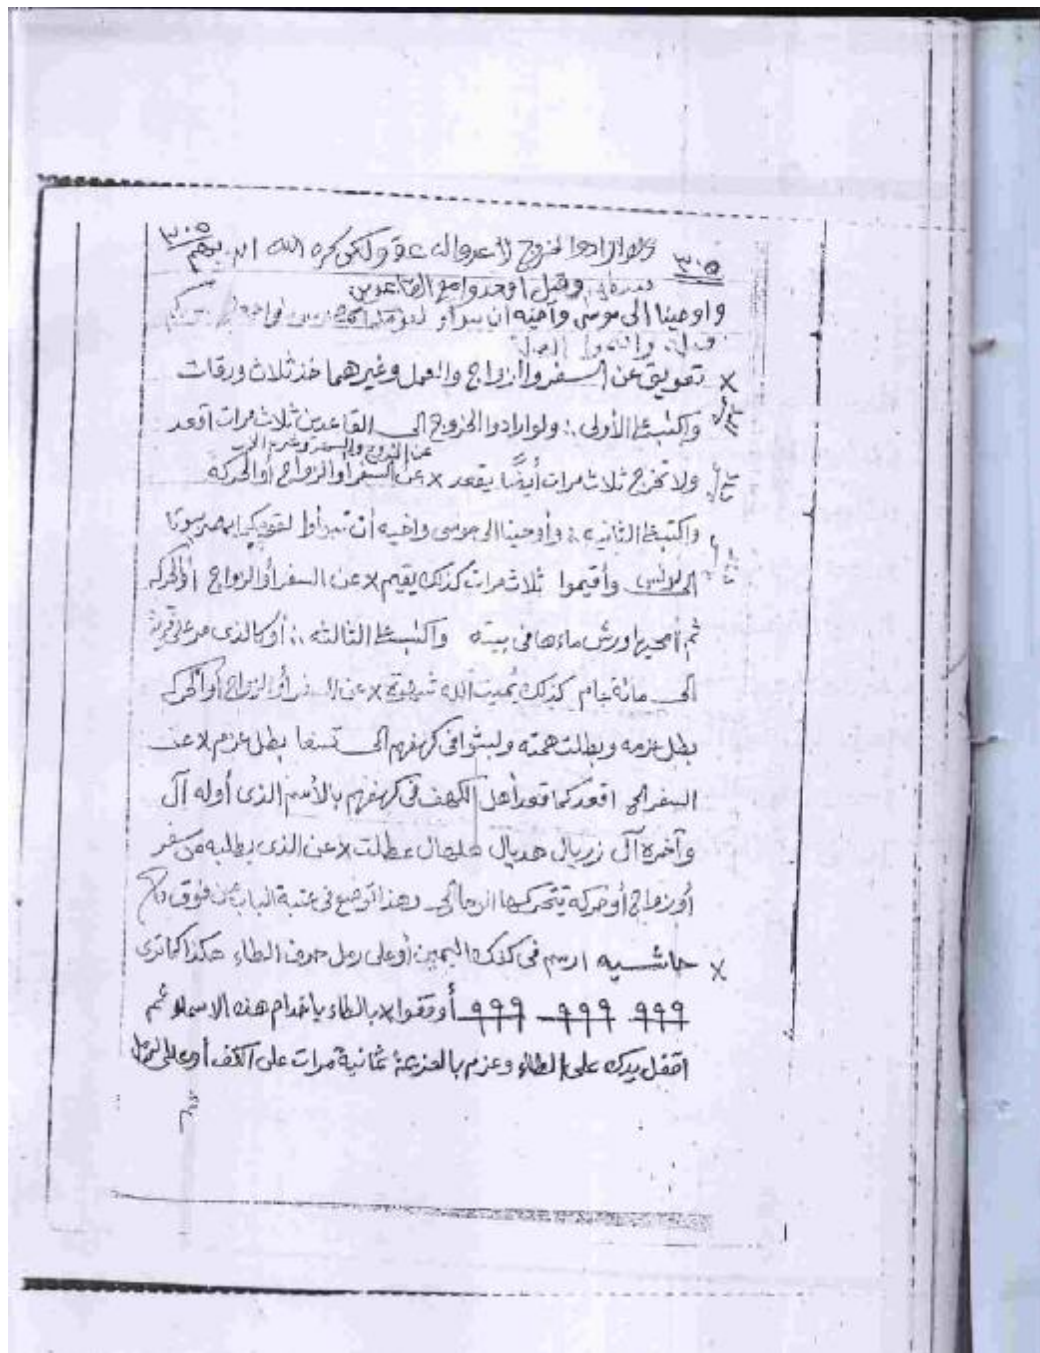 ٣٠٥ ولو ارادوا الخروج لاعدوا له عدة ولكن كره الله ٣٠٥
وقيل اقعدوا مع القاعدين
واوحينا الى موسى وأخيه أن
واقيموا
× تعويق عن السفر والزواج والعمل وغيرهما خذ ثلاث ورقات
واكتب على الأولى :. ولو ارادوا الخروج الى القاعدين ثلاث مرات اقعد
عن الزواج والسفر
ولا تخرج ثلاث مرات أيضًا يقعد × عن السفر أو الزواج أو الحركة
واكتب على الثانية :. وأوحينا الى موسى واخيه أن تبوأوا لقومكما بمصر بيوتا
الى وأقيموا ثلاث مرات كذلك يقيم × عن السفر أو الزواج أو الحركة
ثم أمحيها ورش ماءها فى بيته واكتب على الثالثة :. أو كالذى مر على قرية
الى مائة عام كذلك يميت الله شهوة × عن السفر أو الزواج أو الحركة
بطل عزمه وبطلت همته ولبثوا فى كهفهم الى تسعا بطل عزم × عن
السفر الخ اقعد كما قعد أهل الكهف فى كهفهم بالأسم الذى أوله آل
وآخره آل زريال هديال طلهال عطلت × عن الذى يطلبه من سفر
أو زواج أو حركة يتحرك بها وهذا توضع فى عتبة الباب من فوق
× حاشيه ارسم فى كفك اليمين أو على رمل حرف الطاء هكذا كما ترى
٩٩٩ ٩٩٩ ٩٩٩ أوقفوا × بالطاء ياخدام هذه الاسماء ثم
اقفل يدك على الطاء وعزم بالعزيمة ثمانية مرات على الكف أو على الرمل